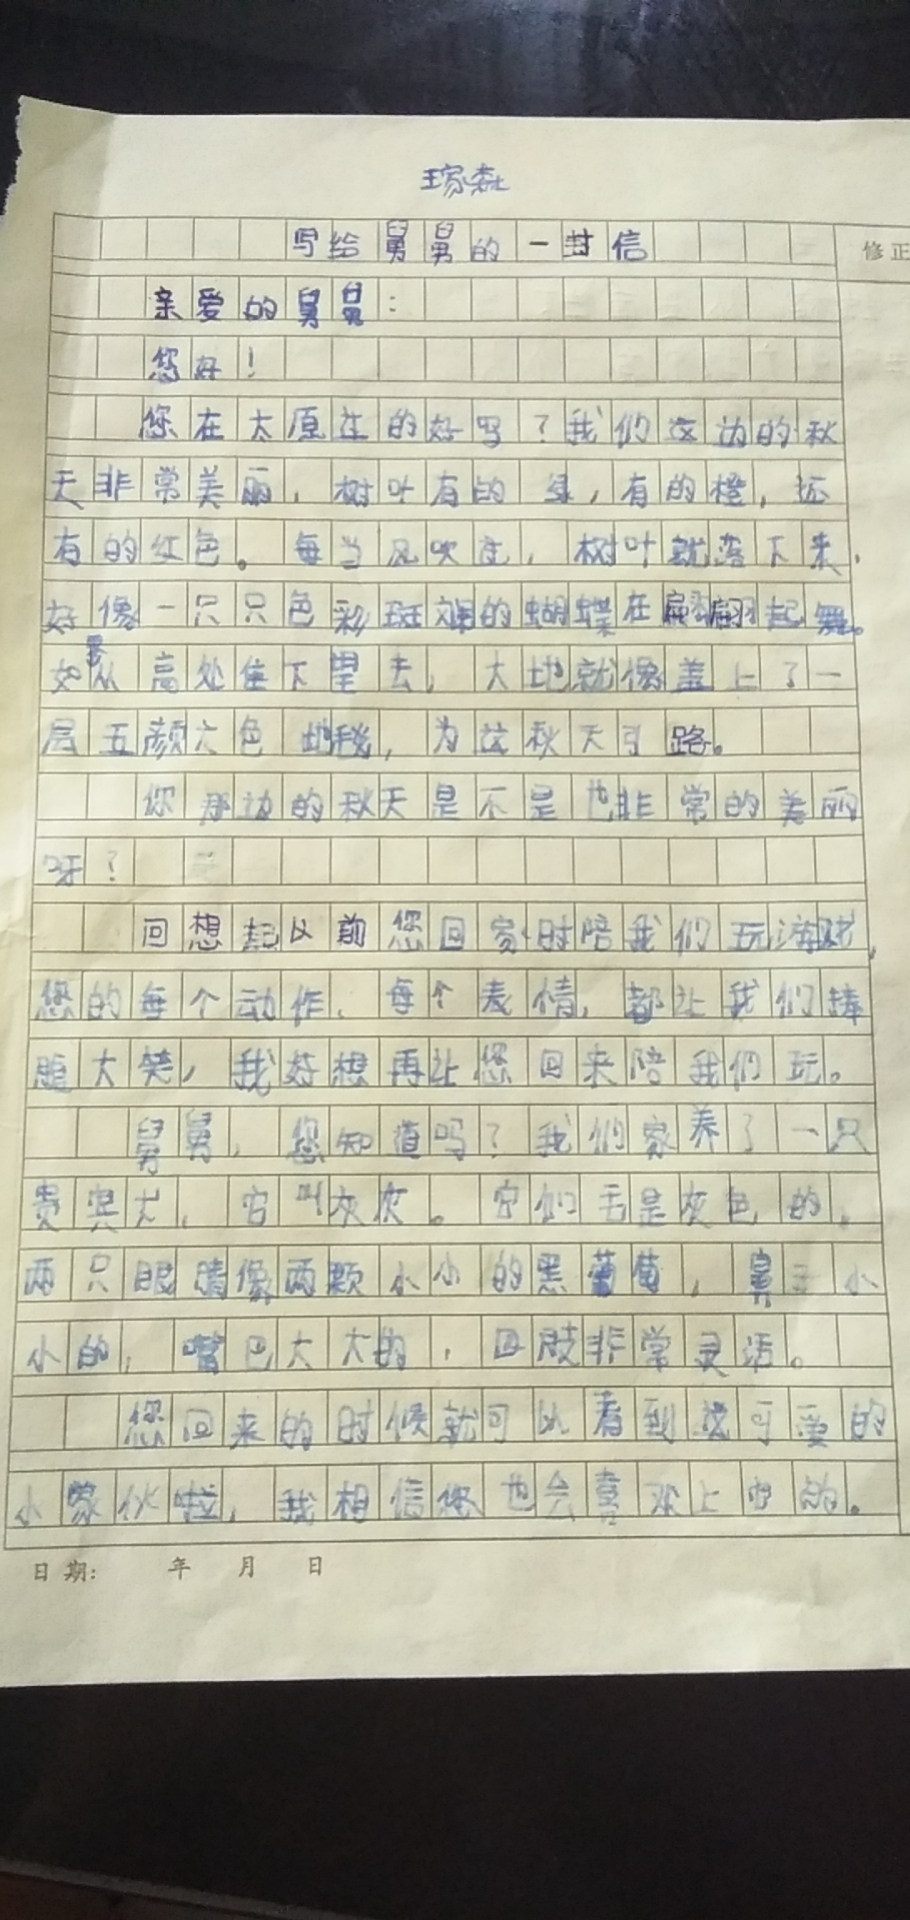 王家森
写给舅舅的一封信
修正
亲爱的舅舅：
您好！
您在太原过的好吗？我们这边的秋
天非常美丽，树叶有的绿，有的橙，还
有的红色。每当风吹过，树叶就落下来，
好像一只只色彩斑斓的蝴蝶在翩翩起舞。
如果从高处往下望去，大地就像盖上了一
层五颜六色地毯，为这秋天引路。
你那边的秋天是不是也非常的美丽
呀？
回想起以前您回家时陪我们玩游戏，
您的每个动作、每个表情，都让我们捧
腹大笑，我好想再让您回来陪我们玩。
舅舅，您知道吗？我们家养了一只
贵宾犬，它叫灰灰。它们毛是灰色的，
两只眼睛像两颗小小的黑葡萄，鼻子小
小的，嘴巴大大的，四肢非常灵活。
您回来的时候就可以看到这可爱的
小家伙啦，我相信您也会喜欢上它的。
日期：　　年　月　日